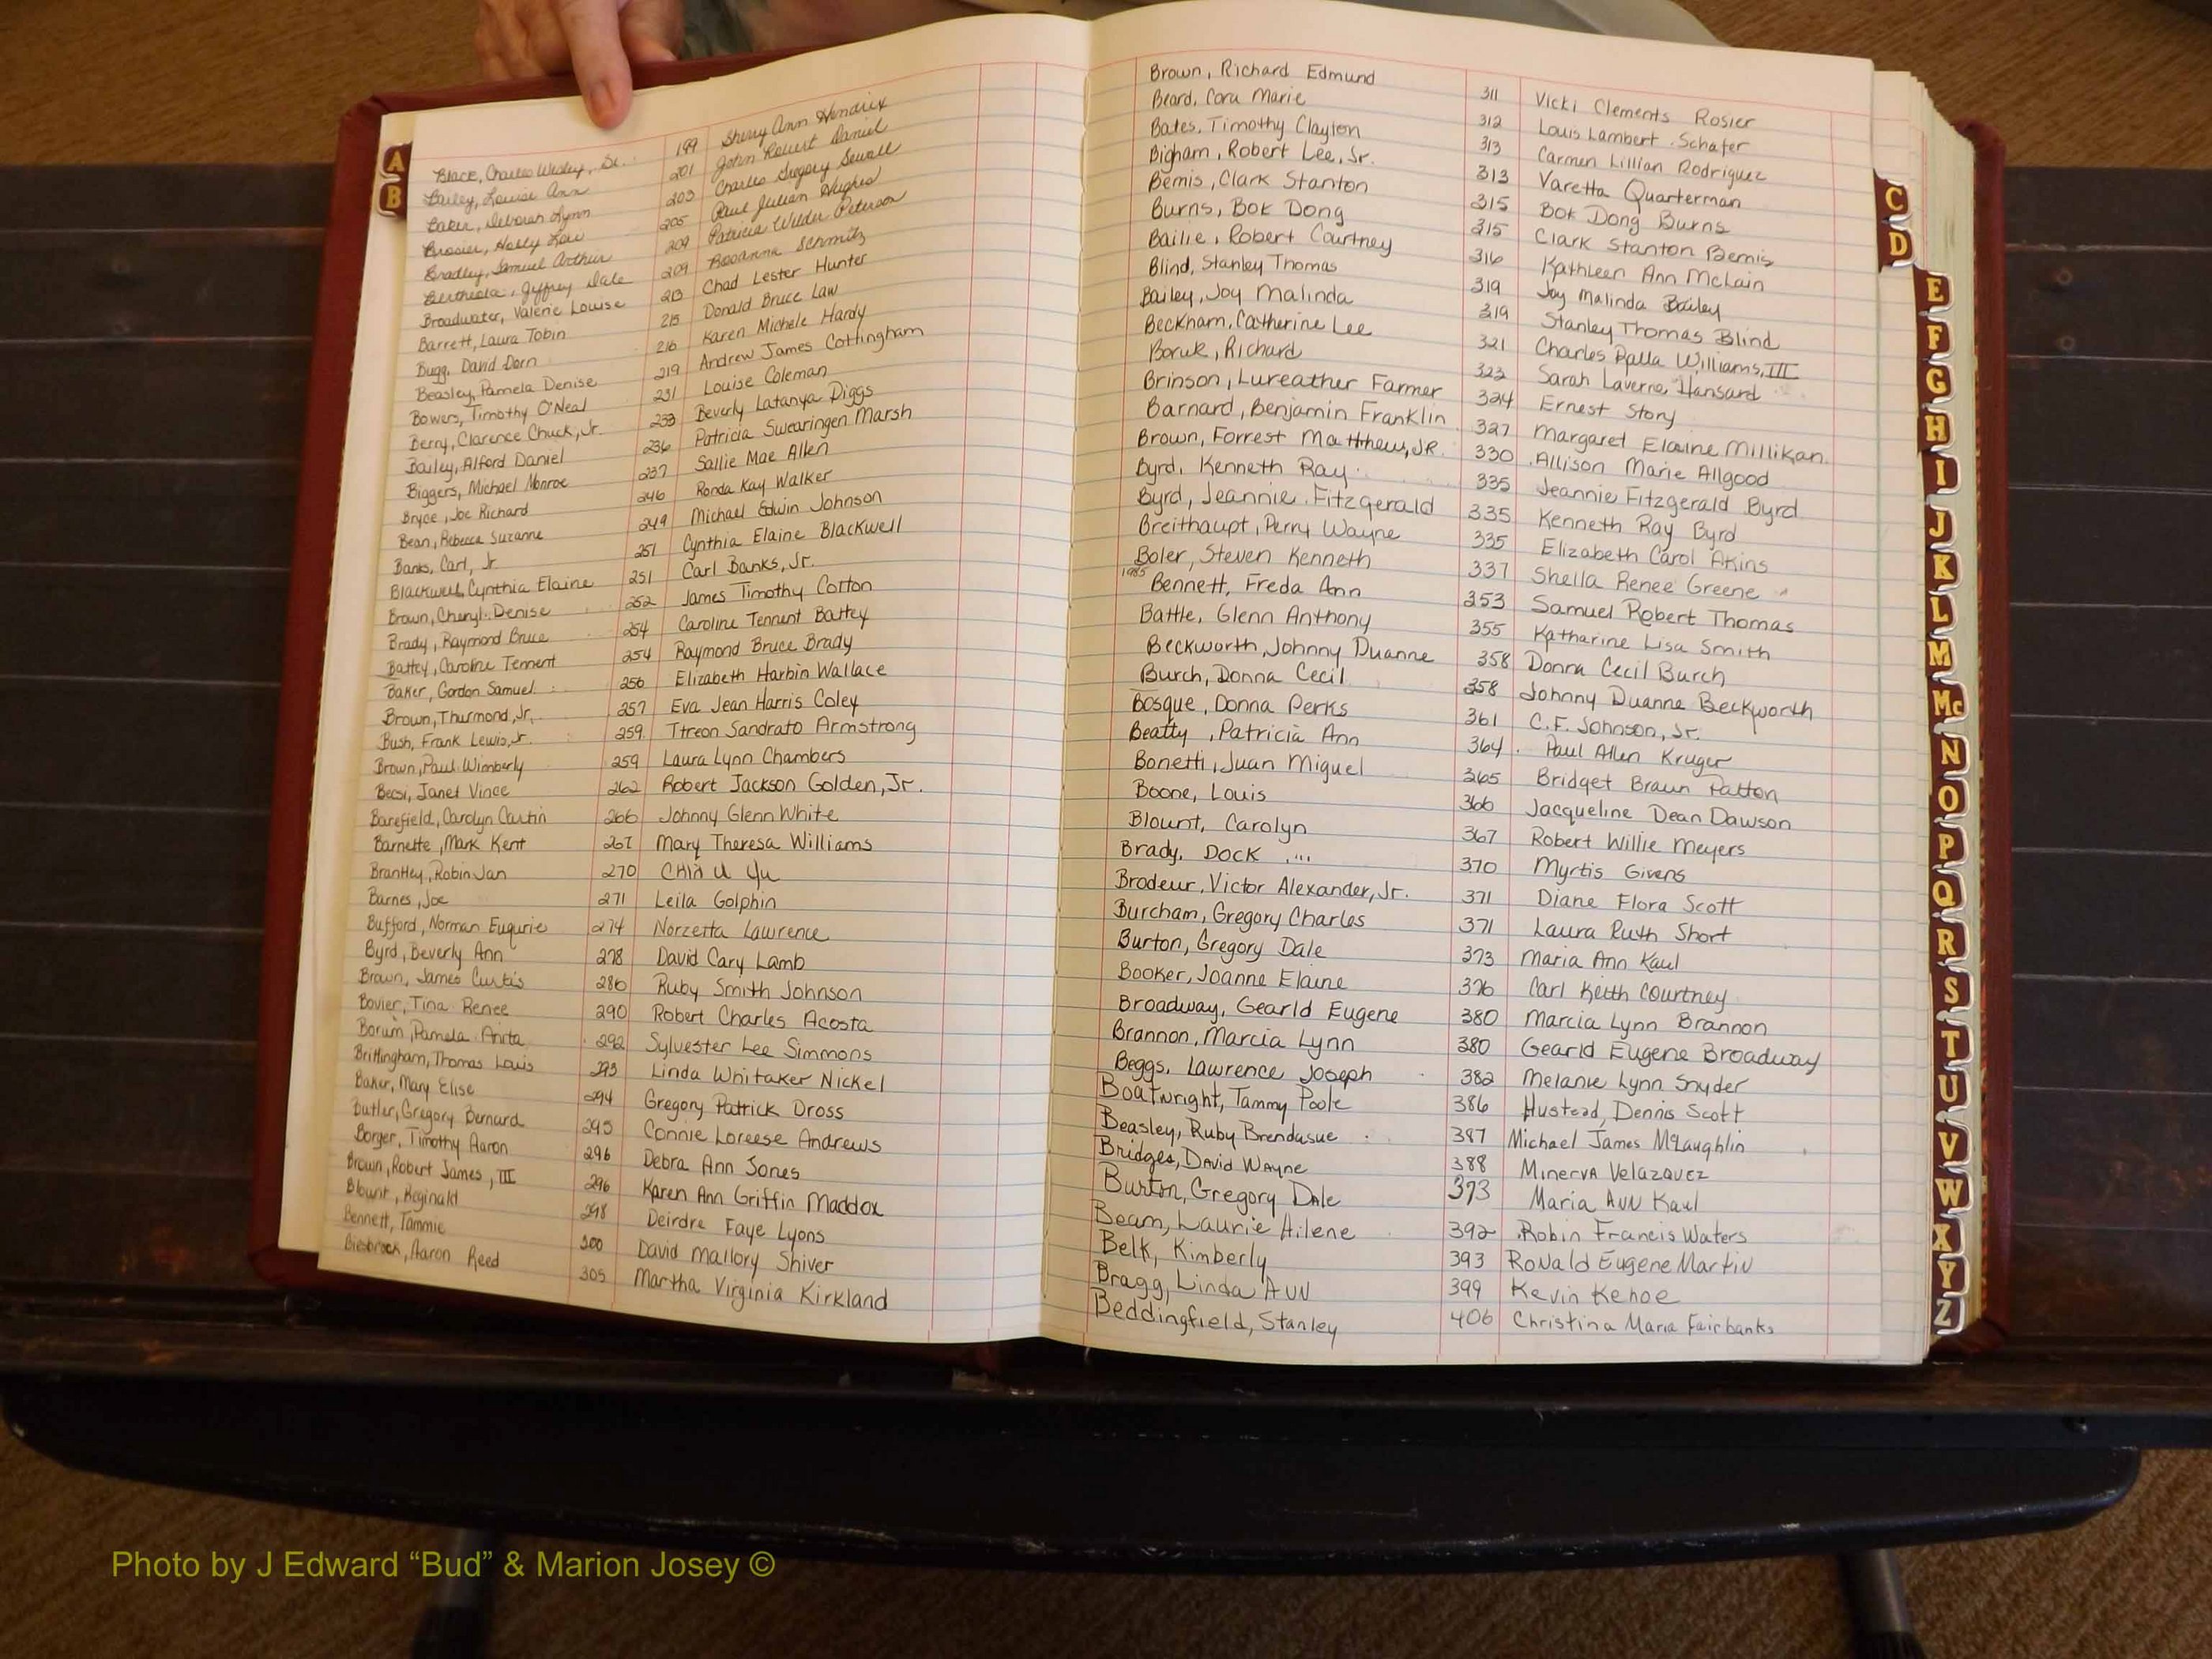 A
B
Black, Charles Wesley, Sr. 199 Sherry Ann Hendrix
Bailey, Louise Ann 201 John Robert Daniel
Baker, Deborah Lynn 203 Charles Gregory Sewall
Holly 205 Paul Julian Hughes
Bradley, Samuel Arthur 209 Patricia Wilder Peterson
Jeffrey Dale 209 Rosanna Schmitz
Broadwater, Valerie Louise 213 Chad Lester Hunter
Barrett, Laura Tobin 215 Donald Bruce Law
Bugg, David Dorn 216 Karen Michele Hardy
Beasley, Pamela Denise 219 Andrew James Cottingham
Bowers, Timothy O'Neal 231 Louise Coleman
Berry, Clarence Chuck, Jr. 233 Beverly Latanya Diggs
Bailey, Alford Daniel 236 Patricia Swearingen Marsh
Biggers, Michael Monroe 237 Sallie Mae Allen
Bryce, Joe Richard 246 Ronda Kay Walker
Bean, Rebecca Suzanne 249 Michael Edwin Johnson
Banks, Carl, Jr 251 Cynthia Elaine Blackwell
Blackwell, Cynthia Elaine 251 Carl Banks, Jr.
Brown, Cheryl Denise 252 James Timothy Cotton
Brady, Raymond Bruce 254 Caroline Tennent Battey
Battey, Caroline Tennent 254 Raymond Bruce Brady
Baker, Gordon Samuel 256 Elizabeth Harbin Wallace
Brown, Thurmond, Jr. 257 Eva Jean Harris Coley
Bush, Frank Lewis, Jr. 259 Ttreon Sandrato Armstrong
Brown, Paul Wimberly 259 Laura Lynn Chambers
Becsi, Janet Vince 262 Robert Jackson Golden, Jr.
Barefield, Carolyn Curtin 266 Johnny Glenn White
Barnette, Mark Kent 267 Mary Theresa Williams
Brantley, Robin Jan 270 Chia U Yu
Barnes, Joe 271 Leila Golphin
Bufford, Norman Euqurie 274 Norzetta Lawrence
Byrd, Beverly Ann 278 David Cary Lamb
Brown, James Curtis 286 Ruby Smith Johnson
Bovier, Tina Renee 290 Robert Charles Acosta
Borum, Pamela Anita 292 Sylvester Lee Simmons
Brittingham, Thomas Louis 293 Linda Whitaker Nickel
Baker, Mary Elise 294 Gregory Patrick Dross
Butler, Gregory Bernard 295 Connie Loreese Andrews
Borger, Timothy Aaron 296 Debra Ann Jones
Brown, Robert James, III 296 Karen Ann Griffin Maddox
Blount, Reginald 298 Deirdre Faye Lyons
Bennett, Tammie 300 David Mallory Shiver
Biesbrock, Aaron Reed 305 Martha Virginia Kirkland
Brown, Richard Edmund 311 Vicki Clements Rosier
Beard, Cora Marie 312 Louis Lambert Schafer
Bates, Timothy Clayton 313 Carmen Lillian Rodriguez
Bigham, Robert Lee, Sr. 313 Varetta Quarterman
Bemis, Clark Stanton 315 Bok Dong Burns
Burns, Bok Dong 315 Clark Stanton Bemis
Bailie, Robert Courtney 316 Kathleen Ann McLain
Blind, Stanley Thomas 319 Joy Malinda Bailey
Bailey, Joy Malinda 319 Stanley Thomas Blind
Beckham, Catherine Lee 321 Charles Palla Williams, III
Boruk, Richard 323 Sarah Laverne Hansard
Brinson, Lureather Farmer 324 Ernest Story
Barnard, Benjamin Franklin 327 Margaret Elaine Millikan
Brown, Forrest Matthews, JR. 330 Allison Marie Allgood
Byrd, Kenneth Ray 335 Jeannie Fitzgerald Byrd
Byrd, Jeannie Fitzgerald 335 Kenneth Ray Byrd
Breithaupt, Perry Wayne 335 Elizabeth Carol Akins
Boler, Steven Kenneth 337 Shella Renee Greene
1985 Bennett, Freda Ann 353 Samuel Robert Thomas
Battle, Glenn Anthony 355 Katharine Lisa Smith
Beckworth, Johnny Duanne 358 Donna Cecil Burch
Burch, Donna Cecil 358 Johnny Duanne Beckworth
Bosque, Donna Perks 361 C.F. Johnson, Jr.
Beatty, Patricia Ann 364 Paul Allen Kruger
Bonetti, Juan Miguel 365 Bridget Braun Patton
Boone, Louis 366 Jacqueline Dean Dawson
Blount, Carolyn 367 Robert Willie Meyers
Brady, Dock 370 Myrtis Givens
Brodeur, Victor Alexander, Jr. 371 Diane Flora Scott
Burcham, Gregory Charles 371 Laura Ruth Short
Burton, Gregory Dale 373 Maria Ann Kaul
Booker, Joanne Elaine 376 Carl Keith Courtney
Broadway, Gearld Eugene 380 Marcia Lynn Brannon
Brannon, Marcia Lynn 380 Gearld Eugene Broadway
Beggs, Lawrence Joseph 382 Melanie Lynn Snyder
Boatwright, Tammy Poole 386 Hustead, Dennis Scott
Beasley, Ruby Brendasue 387 Michael James McLaughlin
Bridges, David Wayne 388 Minerva Velazquez
Burton, Gregory Dale 373 Maria Ann Kaul
Beam, Laurie Ailene 392 Robin Francis Waters
Belk, Kimberly 393 Ronald Eugene Martin
Bragg, Linda Ann 399 Kevin Kehoe
Beddingfield, Stanley 406 Christina Maria Fairbanks
C
D
E
F
G
H
I
J
K
L
M
Mc
N
O
P
Q
R
S
T
U
V
W
X
Y
Z
Photo by J Edward “Bud” & Marion Josey ©